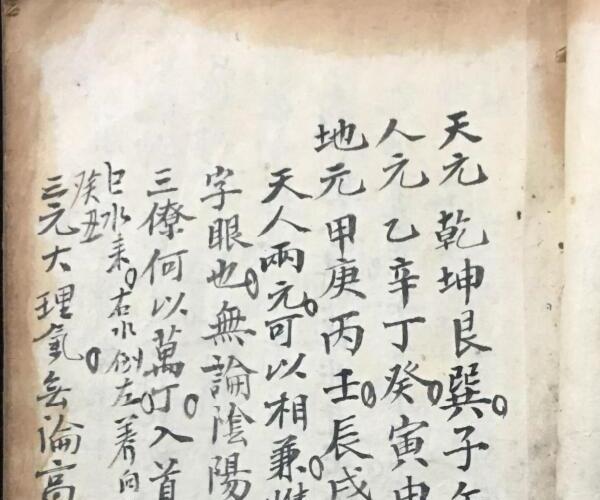 天元乾坤艮巽。子午
人元乙辛丁癸。寅申
地元甲庚丙壬。辰戌
天人兩元。可以相兼。惟
字眼也。無論陰陽
三僚何以萬丁。入首
巳水來。右水倒左兼向
癸丑
三元大理氣。無論高